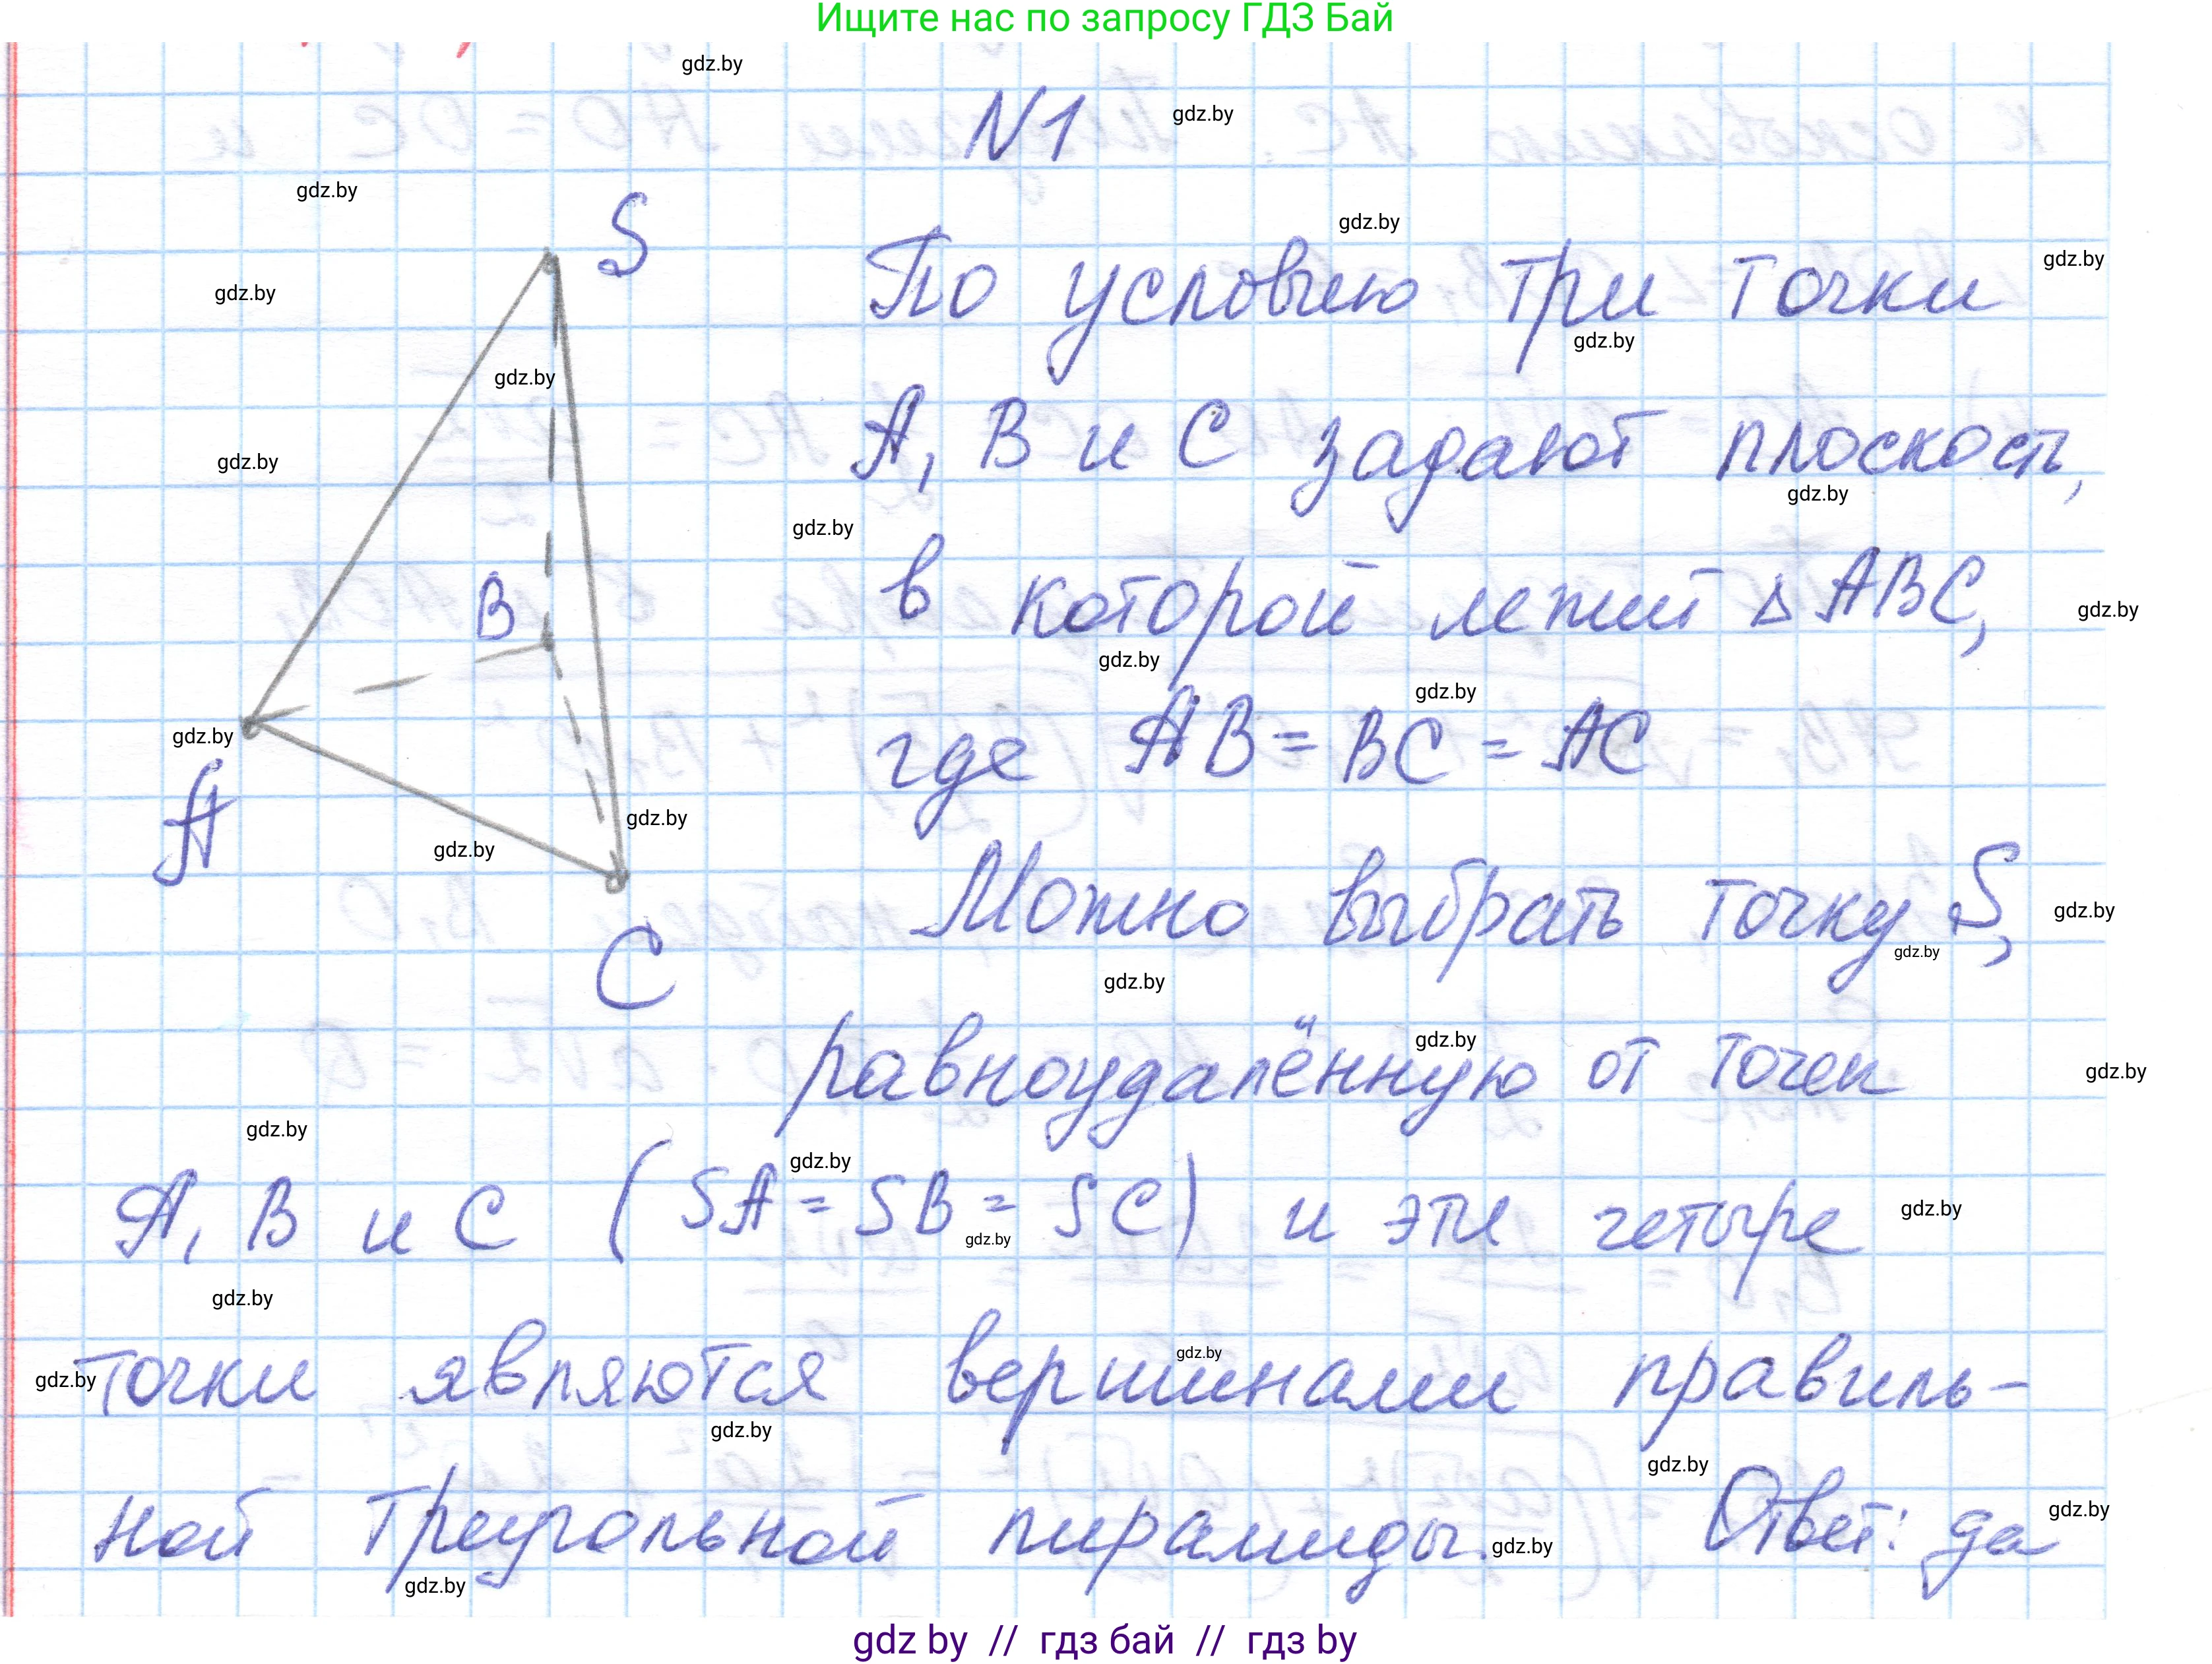 Ищите нас по запросу ГДЗ Бай
N1
S
По условию три точки
A, B и C задают плоскость,
в которой лежит △ABC,
B
где AB = BC = AC
A
Можно выбрать точку S,
C
равноудалённую от точек
A, B и C (SA = SB = SC) и эти четыре
точки являются вершинами правиль-
ной треугольной пирамиды. Ответ: да
gdz by // гдз бай // гдз by
gdz.by